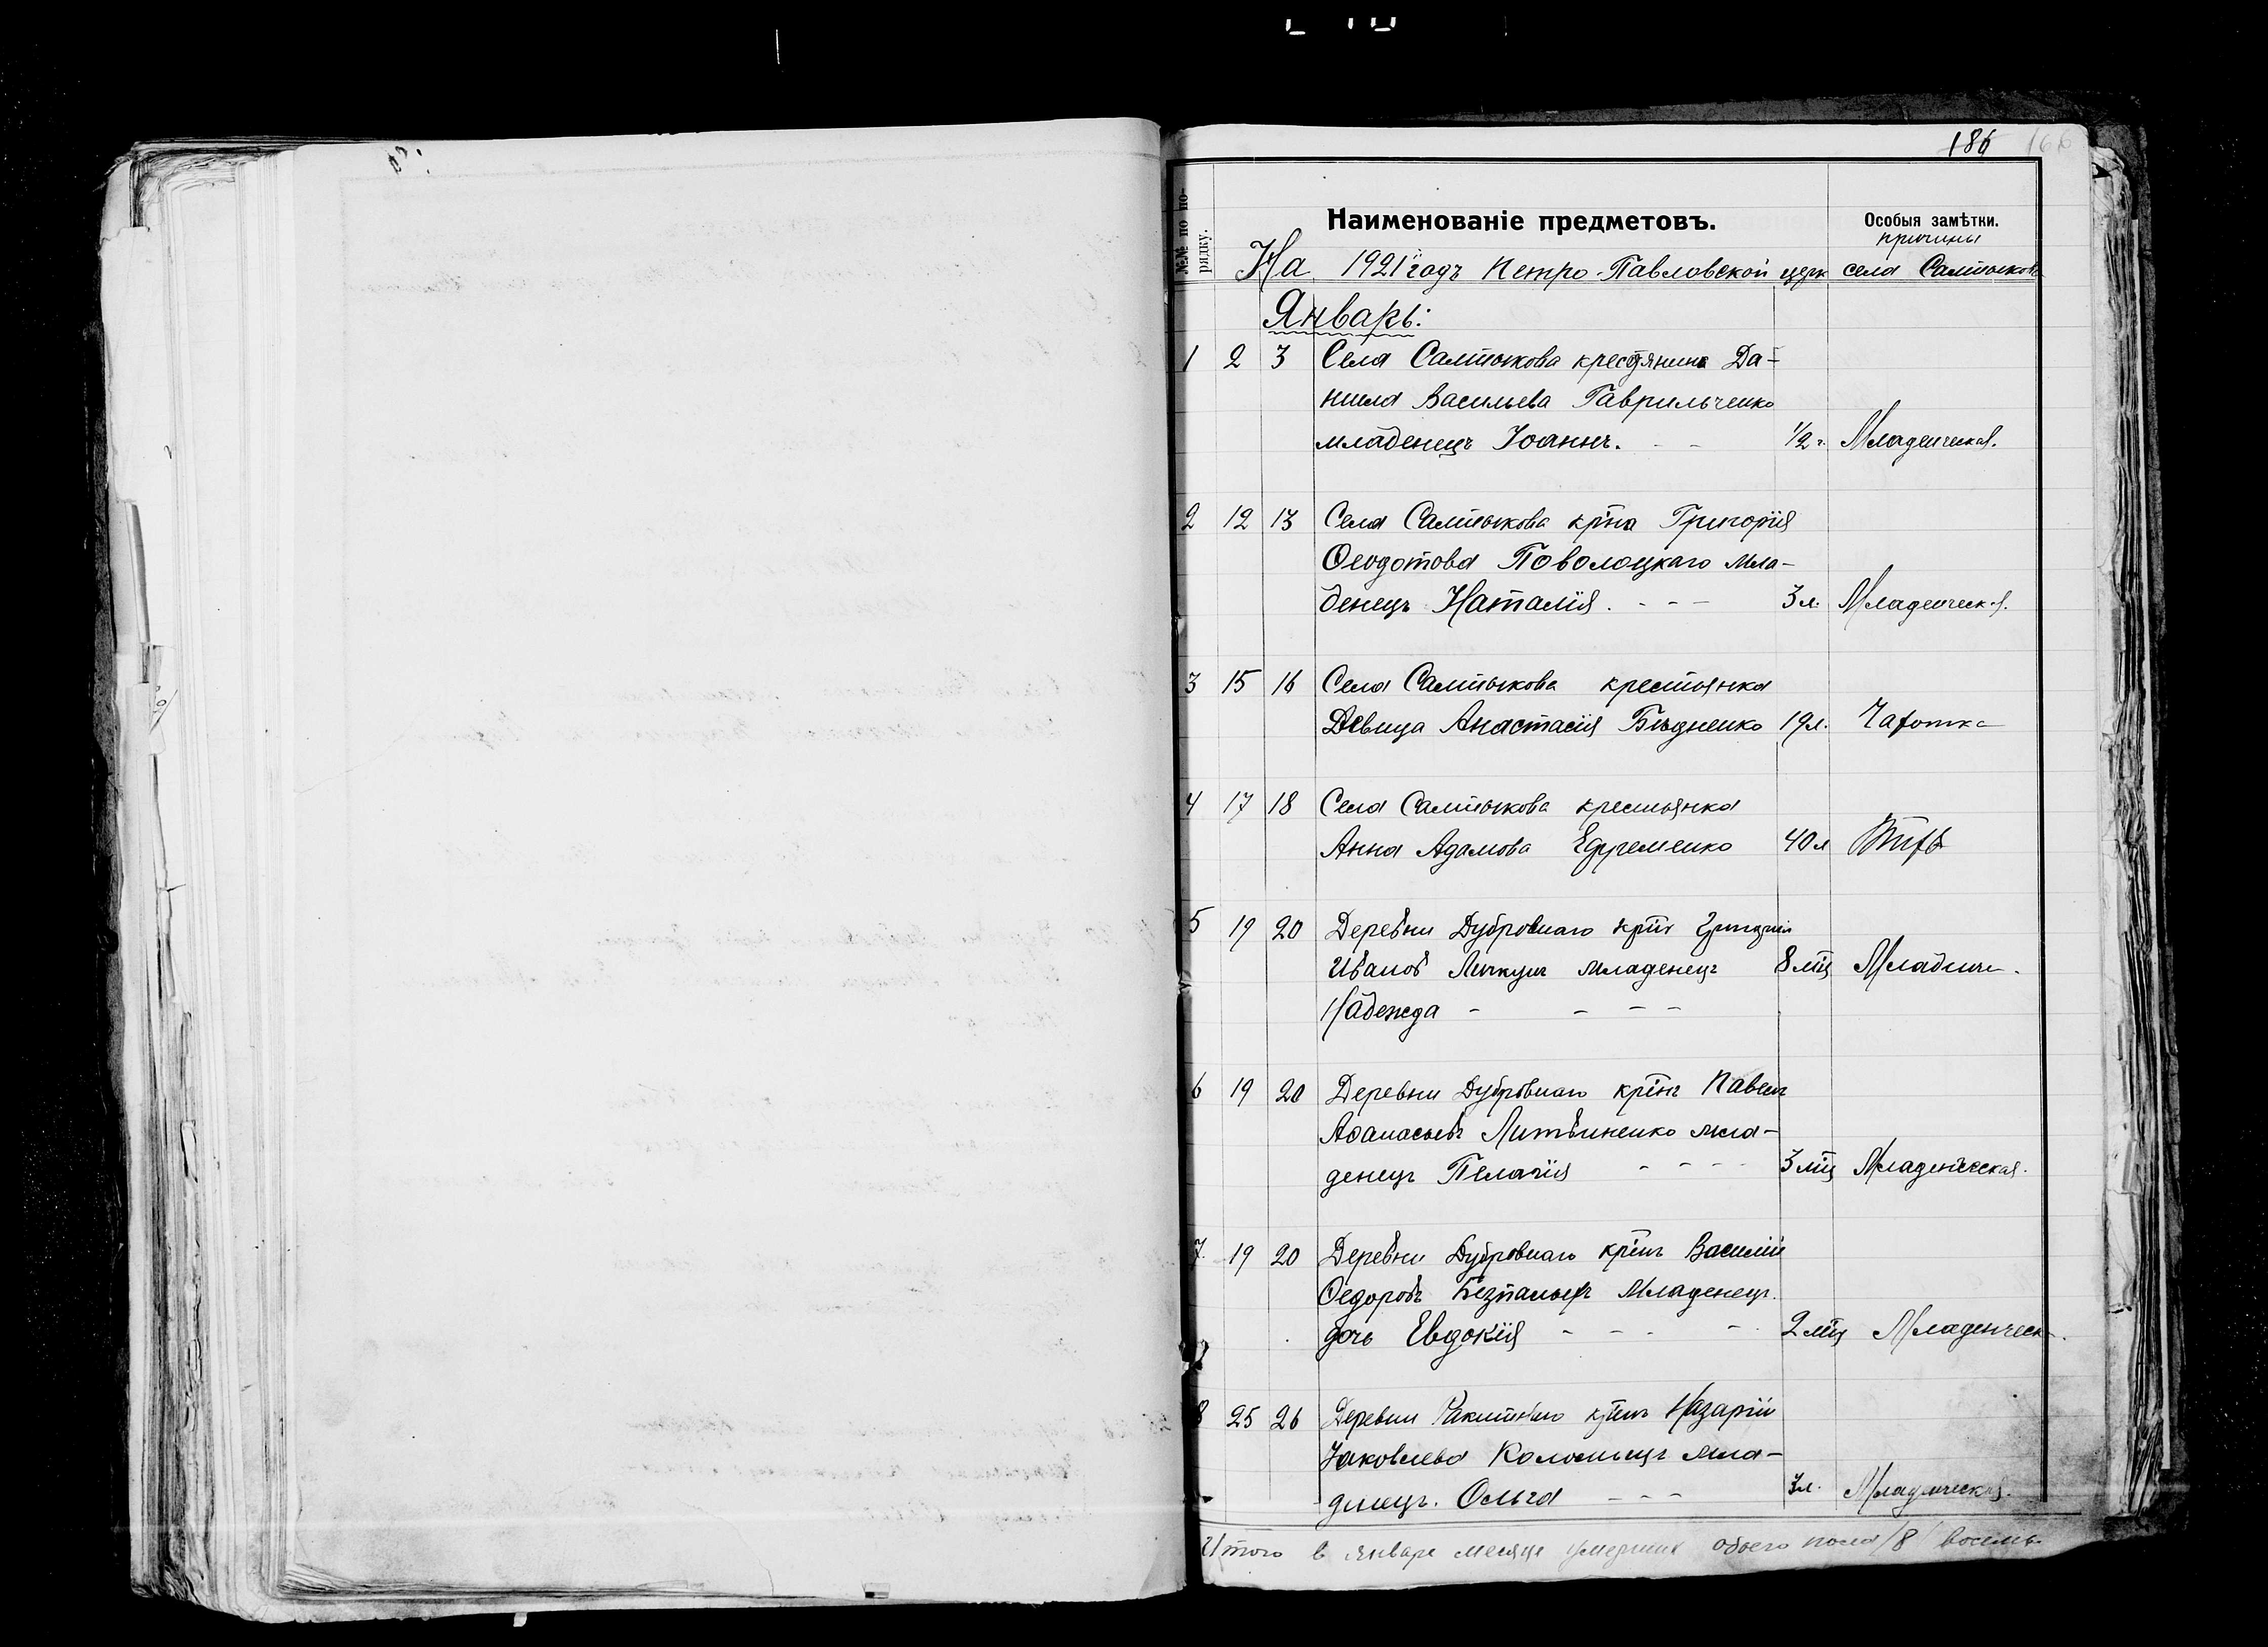 186 166
№№ по по-
рядку.
Наименованіе предметовъ.
Особыя замѣтки.
причины
На 1921 годъ Петро-Павловской церк села Салтыкова
Январь:
1 2 3 Села Салтыкова крестьянина Да-
ниила Васильева Гаврильченко
младенецъ Іоаннъ. - - 1/2 г. Младенческая.
2 12 13 Села Салтыкова кр-на Григорія
Ѳеодотова Поволоцкаго мла-
денецъ Наталія. - - - 3 л. Младенческ.
3 15 16 Села Салтыкова крестьянка
Дѣвица Анастасія Бѣдненко 19 л. Чахотка
4 17 18 Села Салтыкова крестьянка
Анна Адамова Ефременко 40 л Тифъ
5 19 20 Деревни Дубровнаго кр-нъ Григорій
Ивановъ младенецъ 8 мц Младенч.
Надежда - - - -
6 19 20 Деревни Дубровнаго кр-нъ Павелъ
Аѳанасьевъ Литвиненко мла-
денецъ Пелагія - - - - 3 мц Младенческая.
7. 19 20 Деревни Дубровнаго кр-нъ Василій
Ѳедоровъ Безпалый Младенецъ.
дочь Евдокія - - - - 2 мц Младенческ.
8 25 26 Деревни Ракитнаго кр-нъ Назарій
Іаковлева Коломыецъ мла-
денецъ. Ольга - - - 3 л. Младенческая.
Итого в январе месяце умерших обоего пола /8/ восемь.